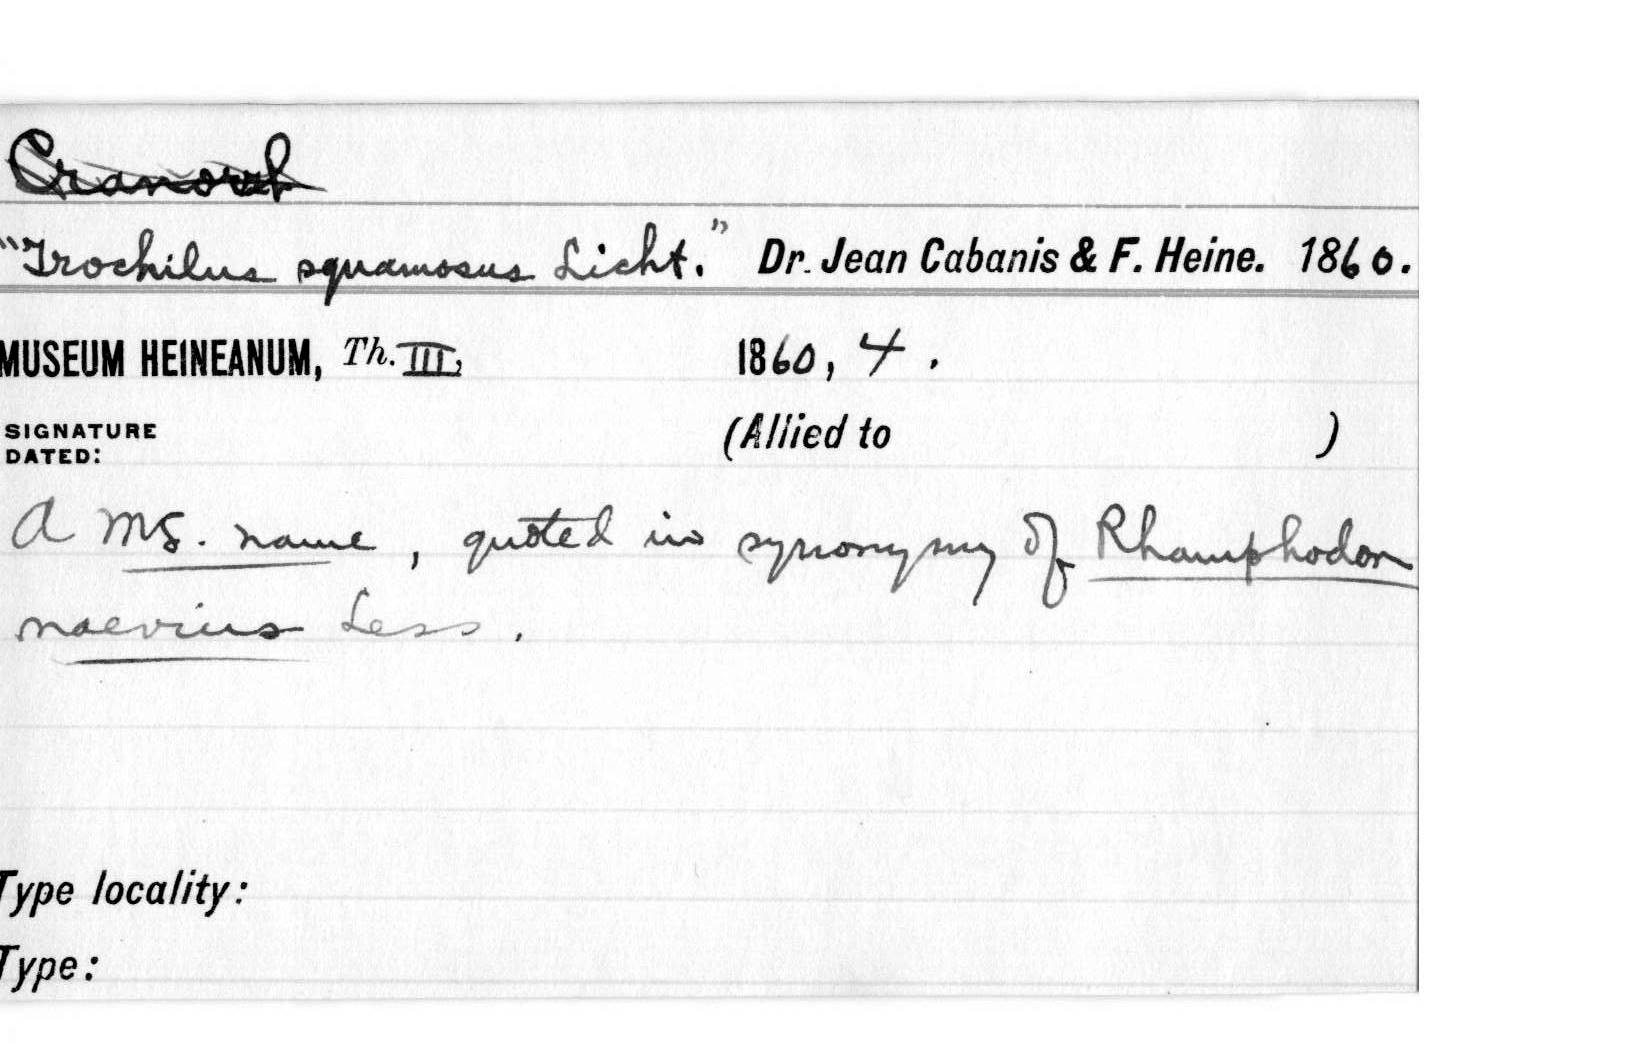 "Trochilus squamosus Licht." Dr. Jean Cabanis & F. Heine. 1860.
MUSEUM HEINEANUM, Th. III, 1860, 4.
SIGNATURE
DATED: (Allied to )
A MS. name, quoted in synonymy of Rhamphodon
naevius Less.
Type locality:
Type: